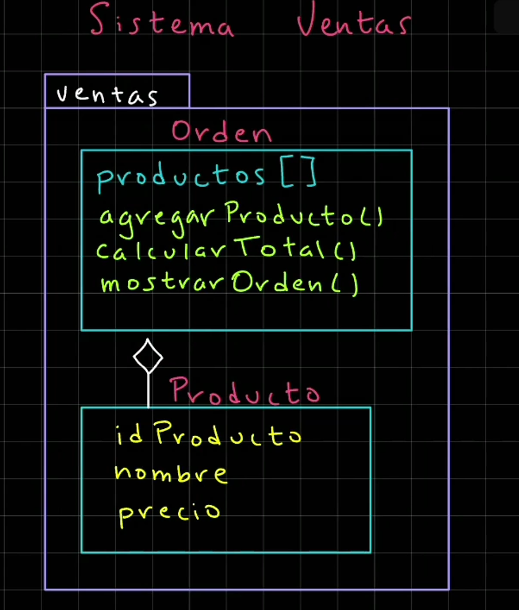 Sistema Ventas
ventas
Orden
productos []
agregarProducto()
calcularTotal()
mostrarOrden()
Producto
idProducto
nombre
precio